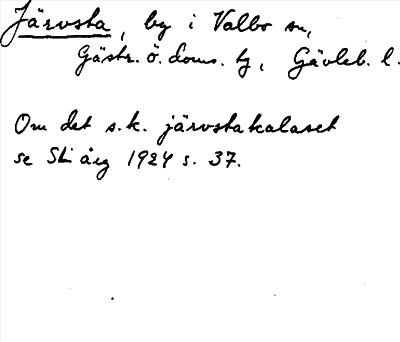 Järvsta, by i Valbo sn,
Gästr. ö. doms. tg, Gävleb. l.
Om det s.k. järvstakalaset
se Sti årg 1924 s. 37.